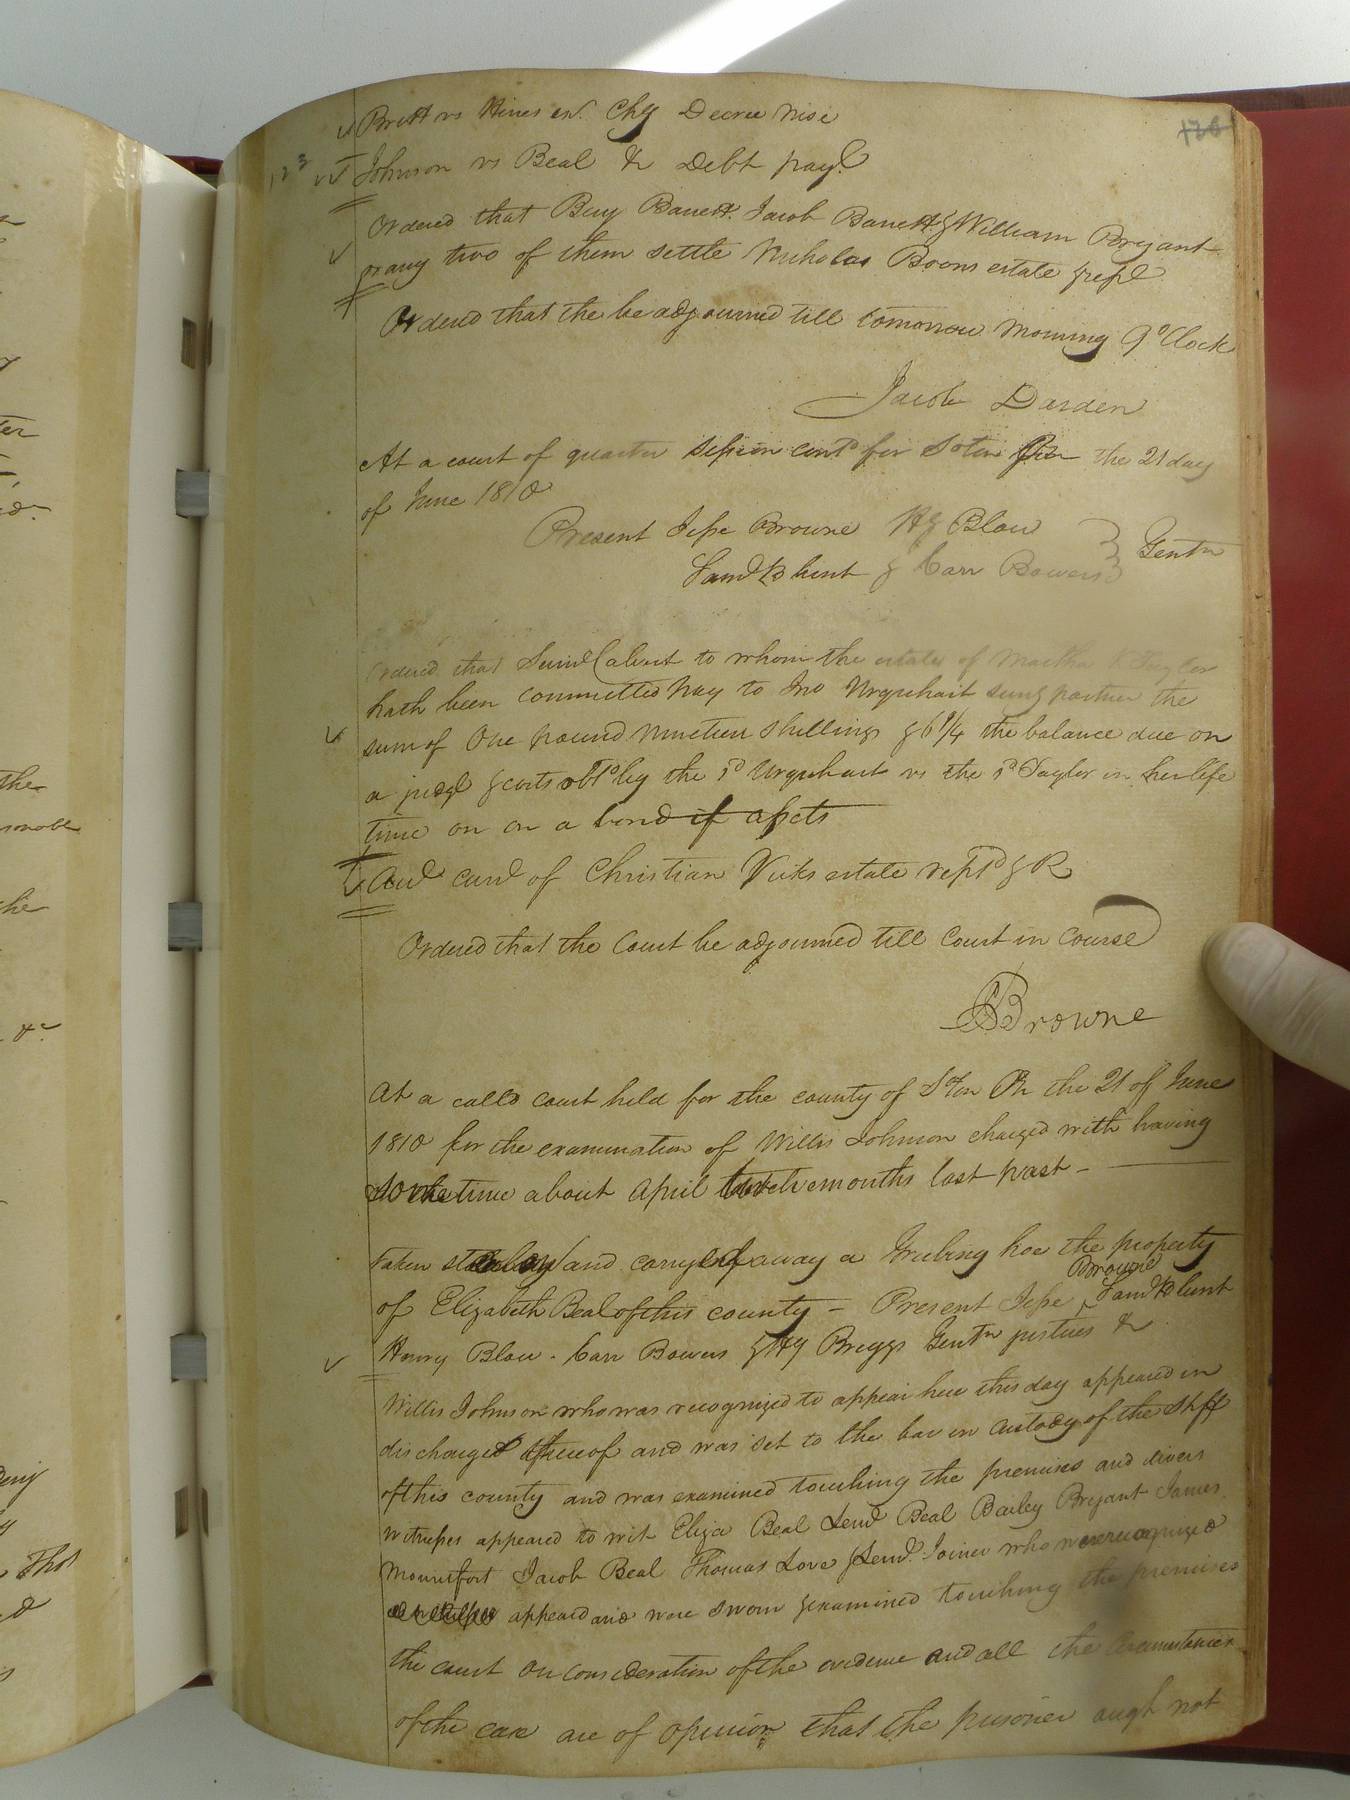 Britt vs Hines exr. Chy Decree Nise
126
123 Johnson vs Beal &c Debt payt.
Ordered that Benj Barrett. Jacob Barrett & William Bryant
or any two of them settle Nicholas Boons estate & rept
Ordered that the be adjourned till tomorrow Morning 9 oClock
Jacob Darden
At a court of quarter Session contd for Soton the 21 day
of June 1810
Present Jesse Browne Hy Blow
Saml Blunt & Carr Bowers } Gentn
Ordered that Saml Calvert to whom the estate of Martha Taylor
hath been committed pay to Jno Urquhart survg partner the
sum of One pound Nineteen Shillings & 6 1/4 the balance due on
a judgt & costs obtd by the sd Urquhart vs the sd Taylor in her life
time on on a bond if assets
Aud curt of Christian Vicks estate reptd & R
Ordered that the Court be adjourned till Court in Course
Browne
At a calld court held for the county of Soton On the 21 of June
1810 for the examination of Willis Johnson charged with having
some time about April twelve months last past -
taken and carryed away a Grubing hoe the property
of Elizabeth Beal of this county - Present Jesse Browne Saml Blunt
Henry Blow - Carr Bowers & Hy Briggs Gentn justices &c
Willis Johnson who was recognized to appear here this day appeared in
discharged thereof and was set to the bar in custody of the Shff
of this county and was examined touching the premises and divers
witnesses appeared to wit Eliza Beal Lemd Beal Bailey Bryant James
Mountfort Jacob Beal Thomas Love & Leml. Joiner who were recognized
appeared and were sworn & examined touching the premises
the court on consideration of the evidence and all the circumstances
of the case are of opinion that the prisoner ought not